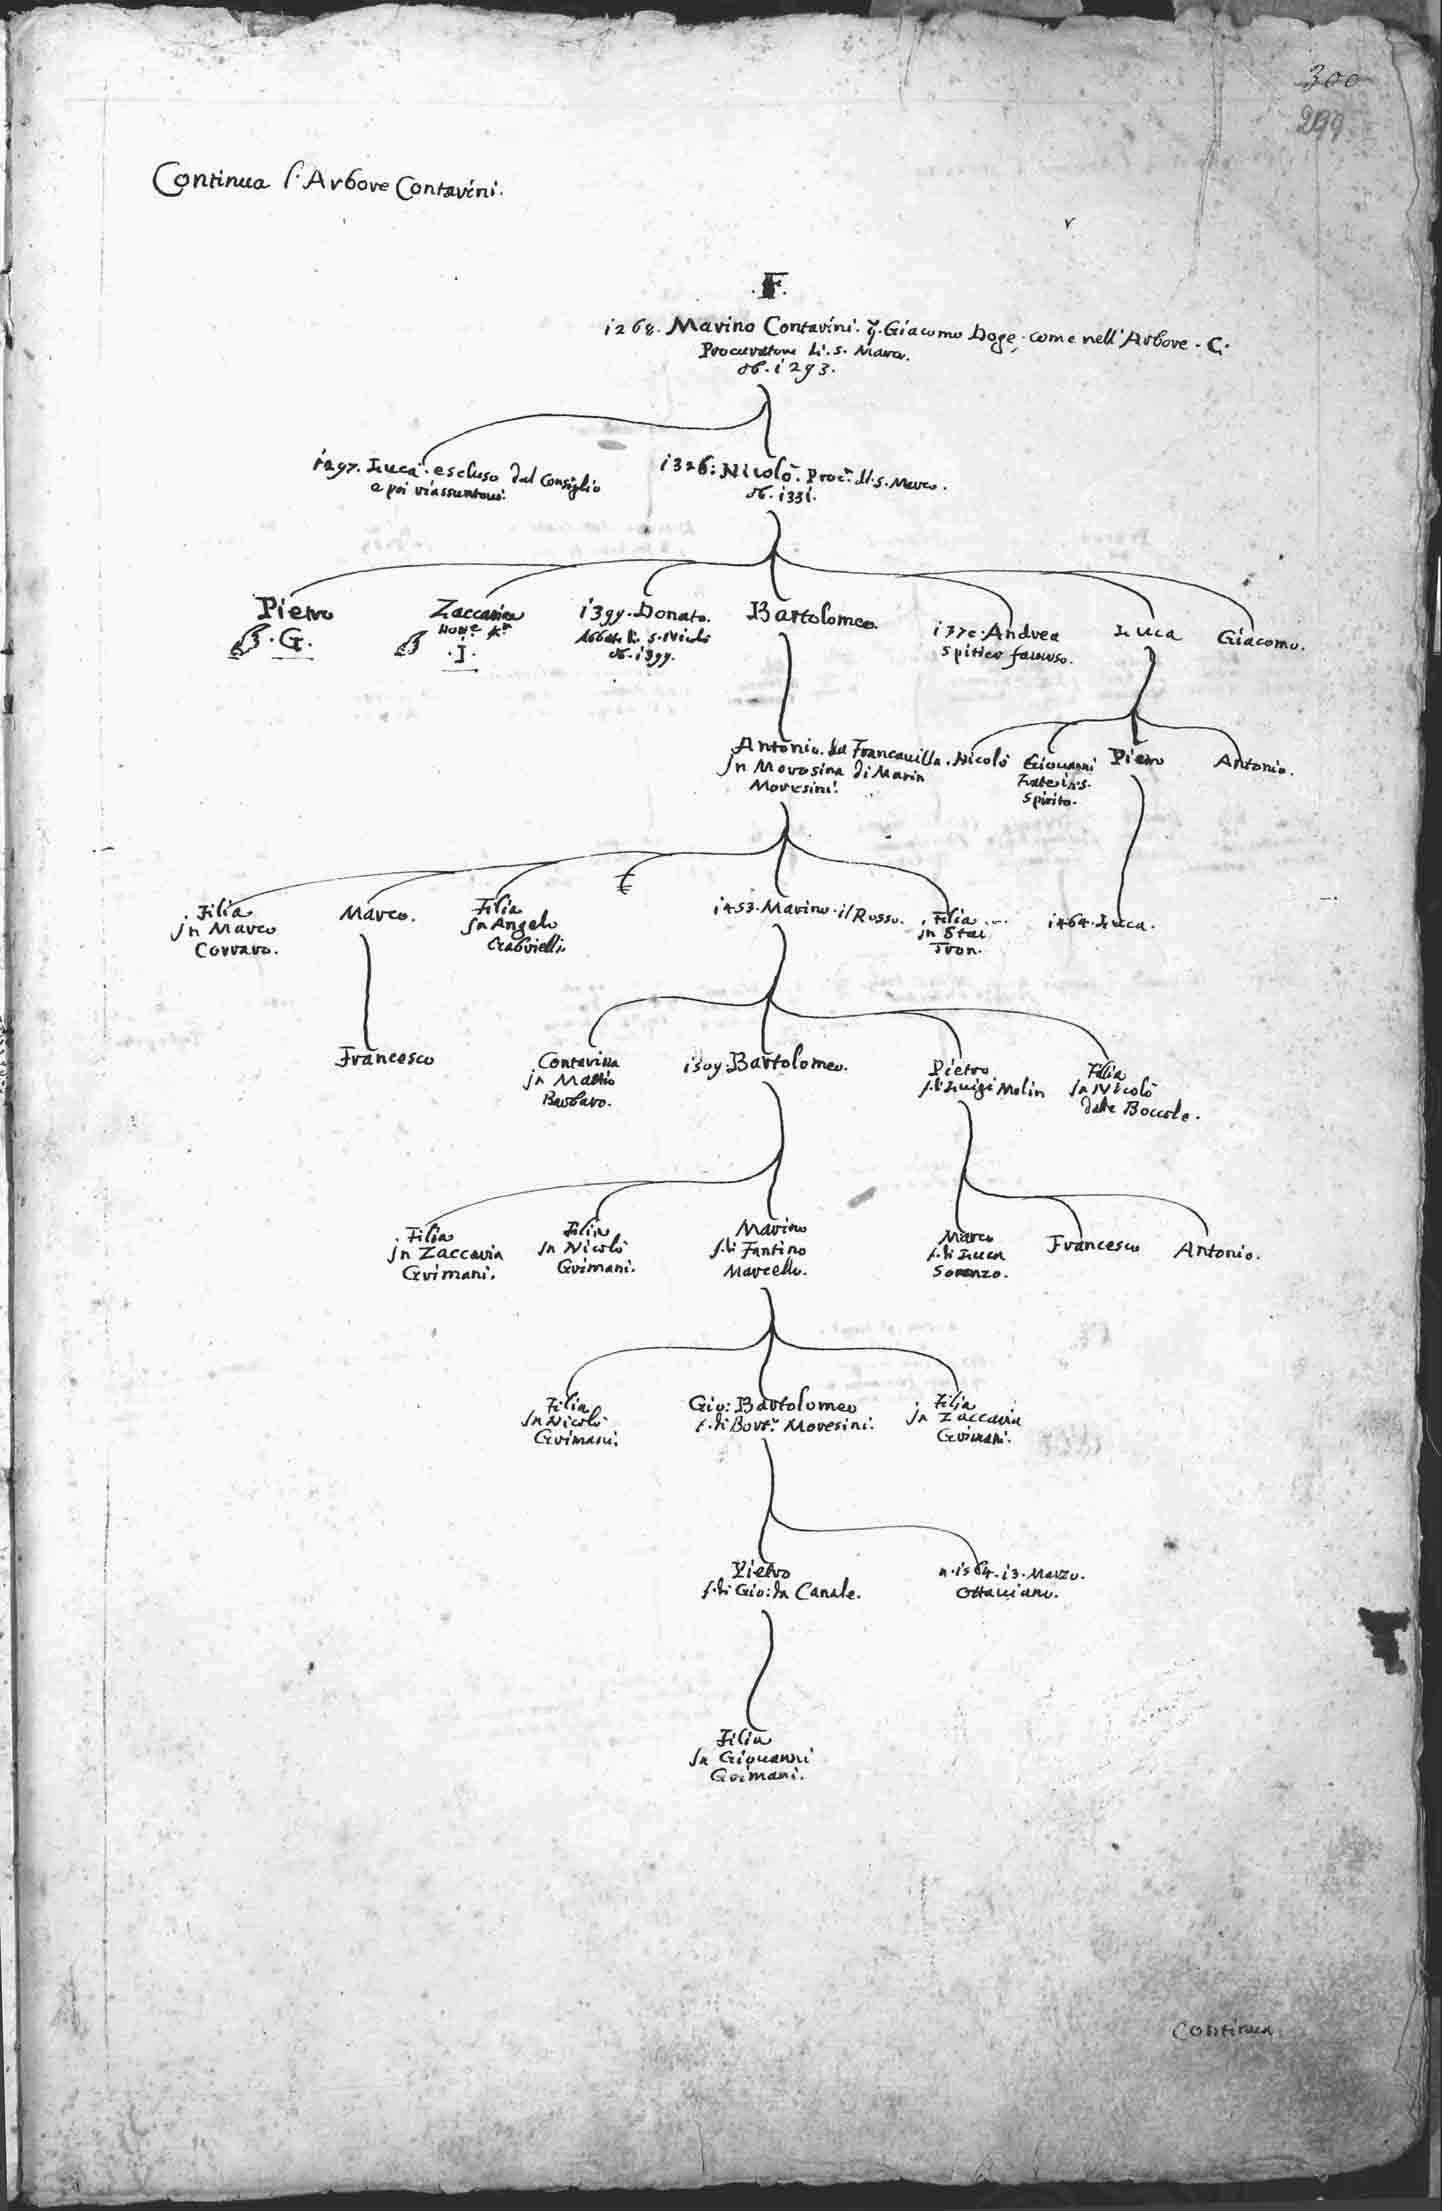 300
299
Continua l'Arbore Contarini.
.F.
1268. Marino Contarini. q. Giacomo Doge. come nell'Arbore. C.
Procurator di. S. Marco.
ob. 1293.
1297. Luca. escluso dal Consiglio
e poi riassuntovi
1326: Nicolò. Proc.r di. S. Marco.
ob. 1331.
Pietro
.G.
Zaccaria
.I.
1399. Donato.
Abbate di S. Nicolò
ob. 1399.
Bartolomeo.
Andrea
Luca
Giacomo.
Antonio. da Francavilla.
in Morosina di Marin
Moresini.
Nicolò
Giovanni
Frate in S.
Spirito.
Pietro
Antonio.
Filia
in Marco
Corraro.
Marco.
Filia
in Angelo
Gabrielli.
1453. Marino. il Rosso.
Filia
in Stai
Tron.
1464. Luca.
Francesco
Contarina
in Mattio
Barbaro.
1509. Bartolomeo.
Pietro
f. di Luigi Molin
Filia
in Nicolò
dalle Boccole.
Filia
in Zaccaria
Grimani.
Filia
in Nicolò
Grimani.
Marino
f. di Fantino
Marcello.
Marco
f. di Luca
Soranzo.
Francesco
Antonio.
Filia
in Nicolò
Grimani.
Gio: Bartolomeo
f. di Bort.o Moresini.
Filia
in Zaccaria
Grimani.
Pietro
f. di Gio: da Canale.
n. 1564. 13. Marzo.
Ottaviano.
Filia
in Giovanni
Grimani.
Continua